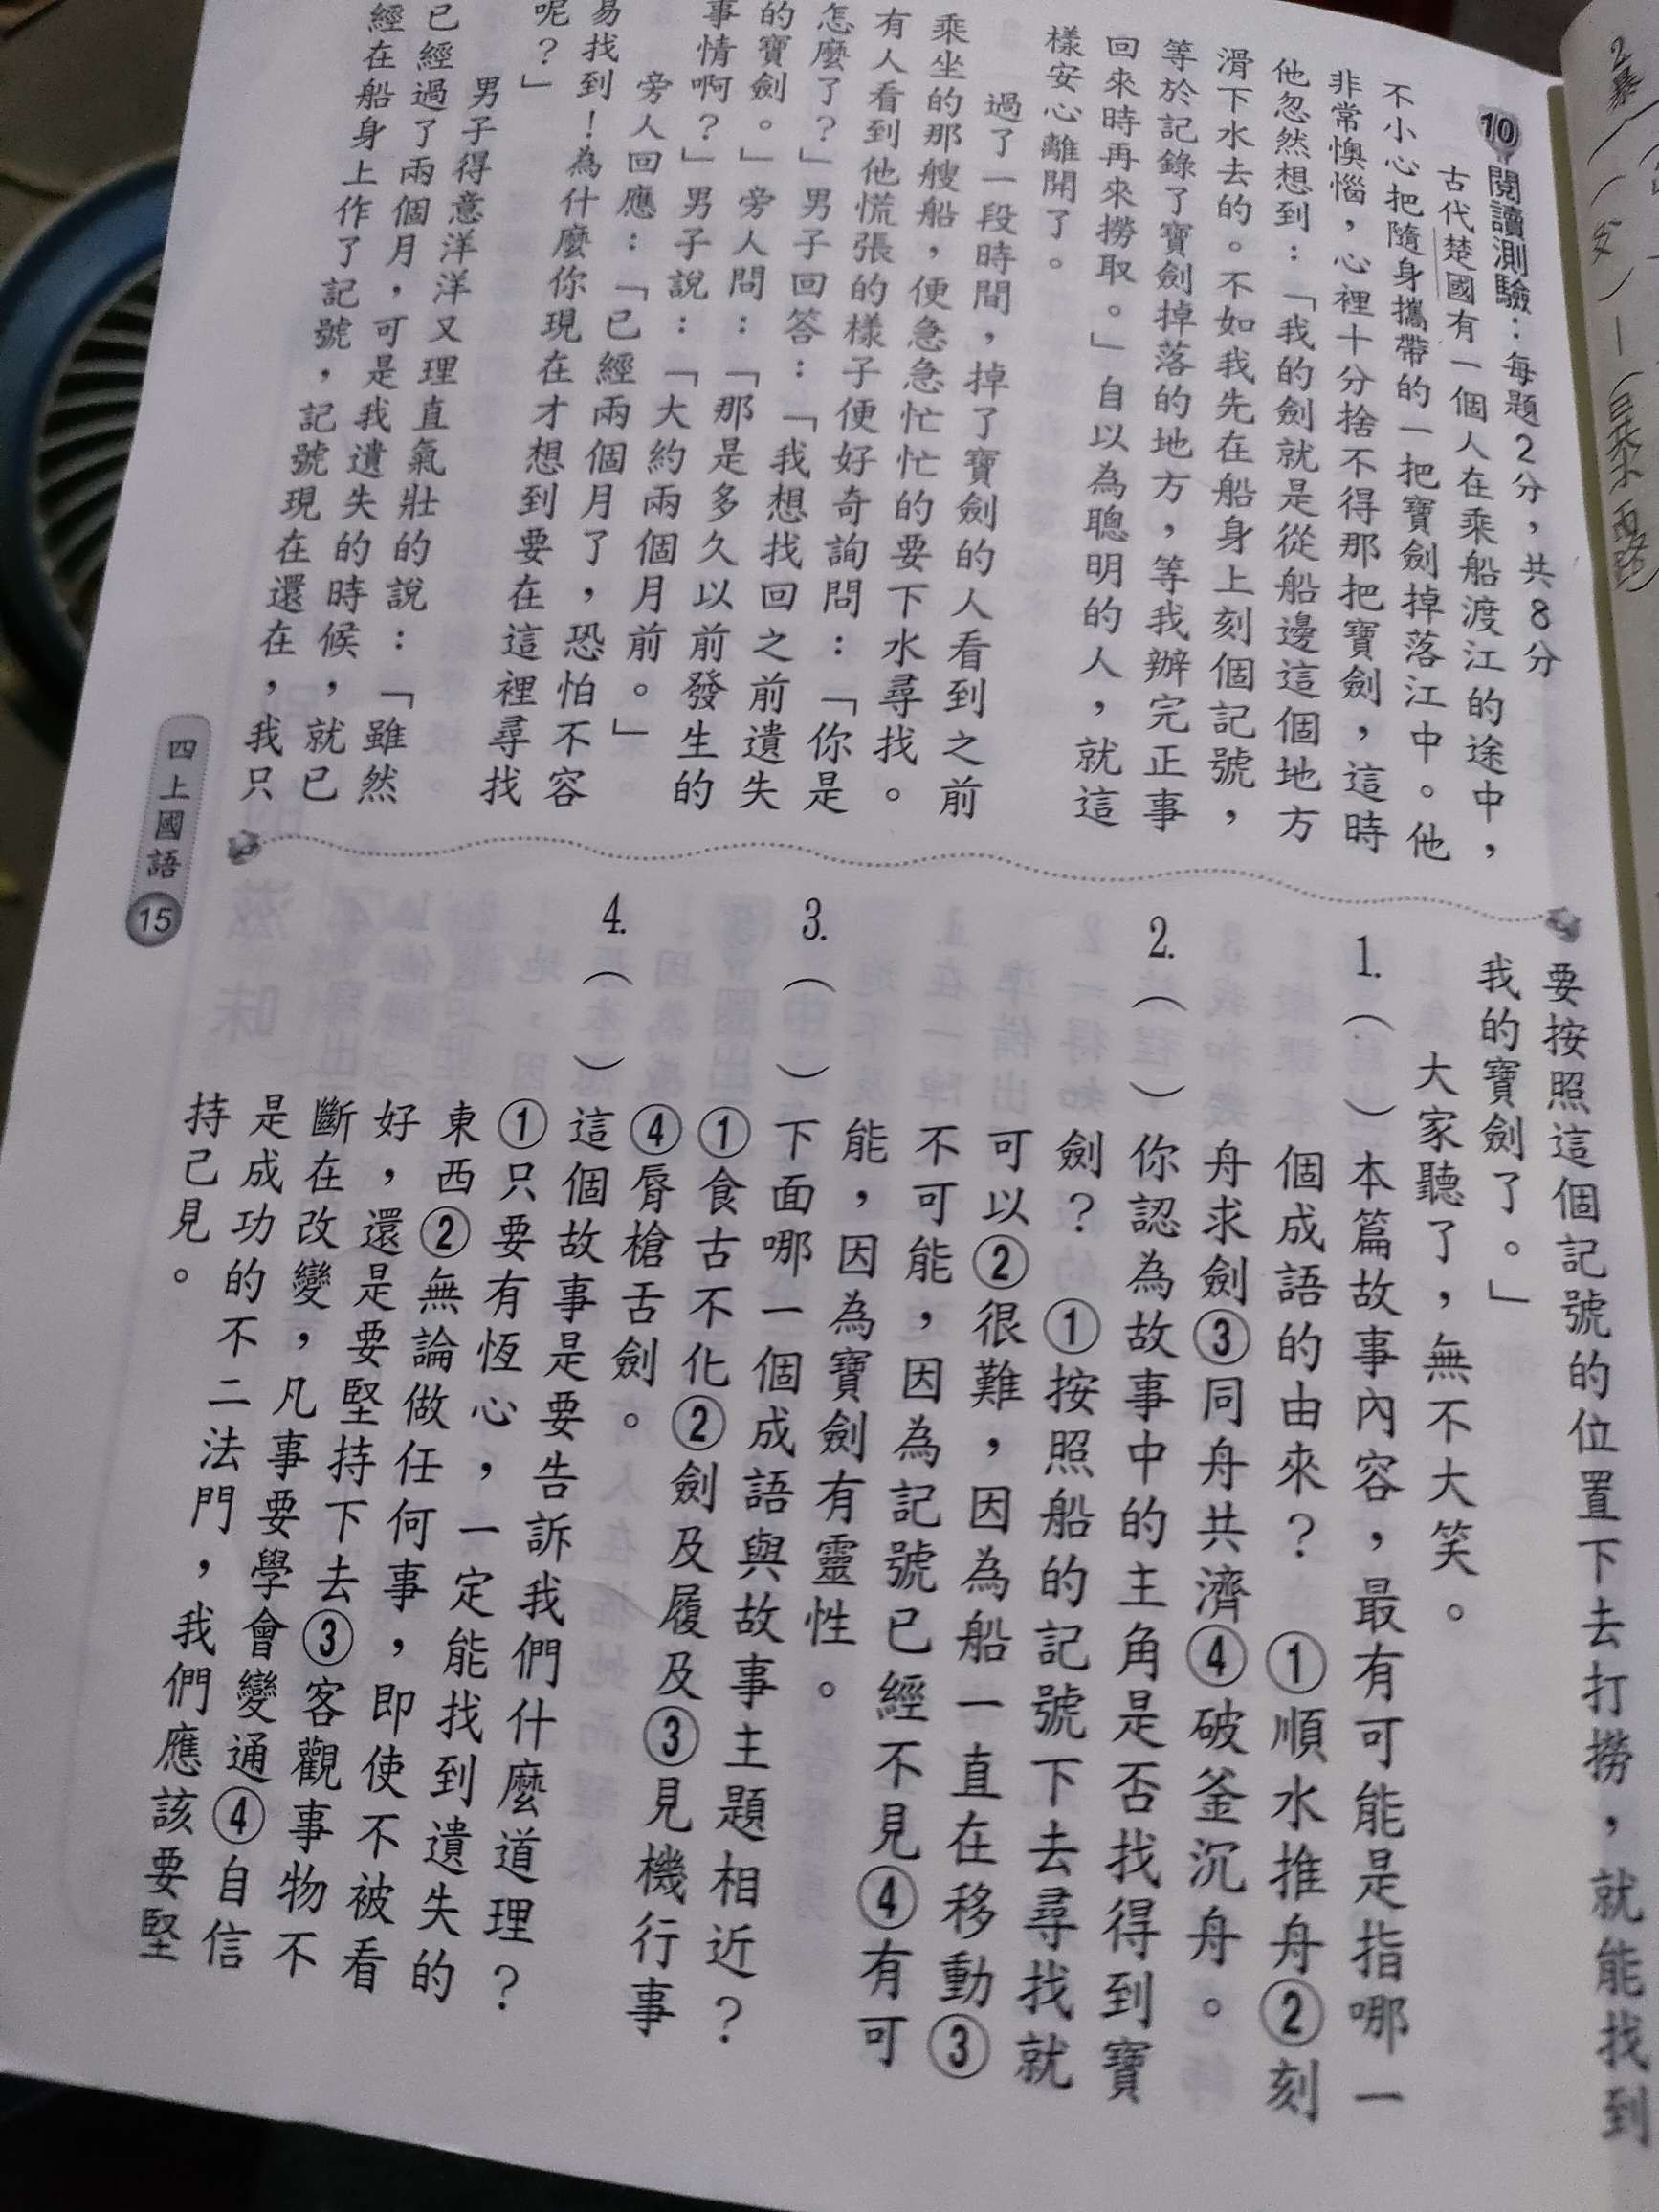 10 閱讀測驗：每題2分，共8分
古代楚國有一個人在乘船渡江的途中，
不小心把隨身攜帶的一把寶劍掉落江中。他
非常懊惱，心裡十分捨不得那把寶劍，這時
他忽然想到：「我的劍就是從船邊這個地方
滑下水去的。不如我先在船身上刻個記號，
等於記錄了寶劍掉落的地方，等我辦完正事
回來時再來撈取。」自以為聰明的人，就這
樣安心離開了。
過了一段時間，掉了寶劍的人看到之前
乘坐的那艘船，便急急忙忙的要下水尋找。
有人看到他慌張的樣子便好奇詢問：「你是
怎麼了？」男子回答：「我想找回之前遺失
的寶劍。」旁人問：「那是多久以前發生的
事情啊？」男子說：「大約兩個月前。」
旁人回應：「已經兩個月了，恐怕不容
易找到！為什麼你現在才想到要在這裡尋找
呢？」
男子得意洋洋又理直氣壯的說：「雖然
已經過了兩個月，可是我遺失的時候，就已
經在船身上作了記號，記號現在還在，我只
要按照這個記號的位置下去打撈，就能找到
我的寶劍了。」
大家聽了，無不大笑。
1.（　）本篇故事內容，最有可能是指哪一
個成語的由來？ ①順水推舟②刻
舟求劍③同舟共濟④破釜沉舟。
2.（　）你認為故事中的主角是否找得到寶
劍？ ①按照船的記號下去尋找就
可以②很難，因為船一直在移動③
不可能，因為記號已經不見④有可
能，因為寶劍有靈性。
3.（　）下面哪一個成語與故事主題相近？
①食古不化②劍及履及③見機行事
④脣槍舌劍。
4.（　）這個故事是要告訴我們什麼道理？
①只要有恆心，一定能找到遺失的
東西②無論做任何事，即使不被看
好，還是要堅持下去③客觀事物不
斷在改變，凡事要學會變通④自信
是成功的不二法門，我們應該要堅
持己見。
四上國語 15